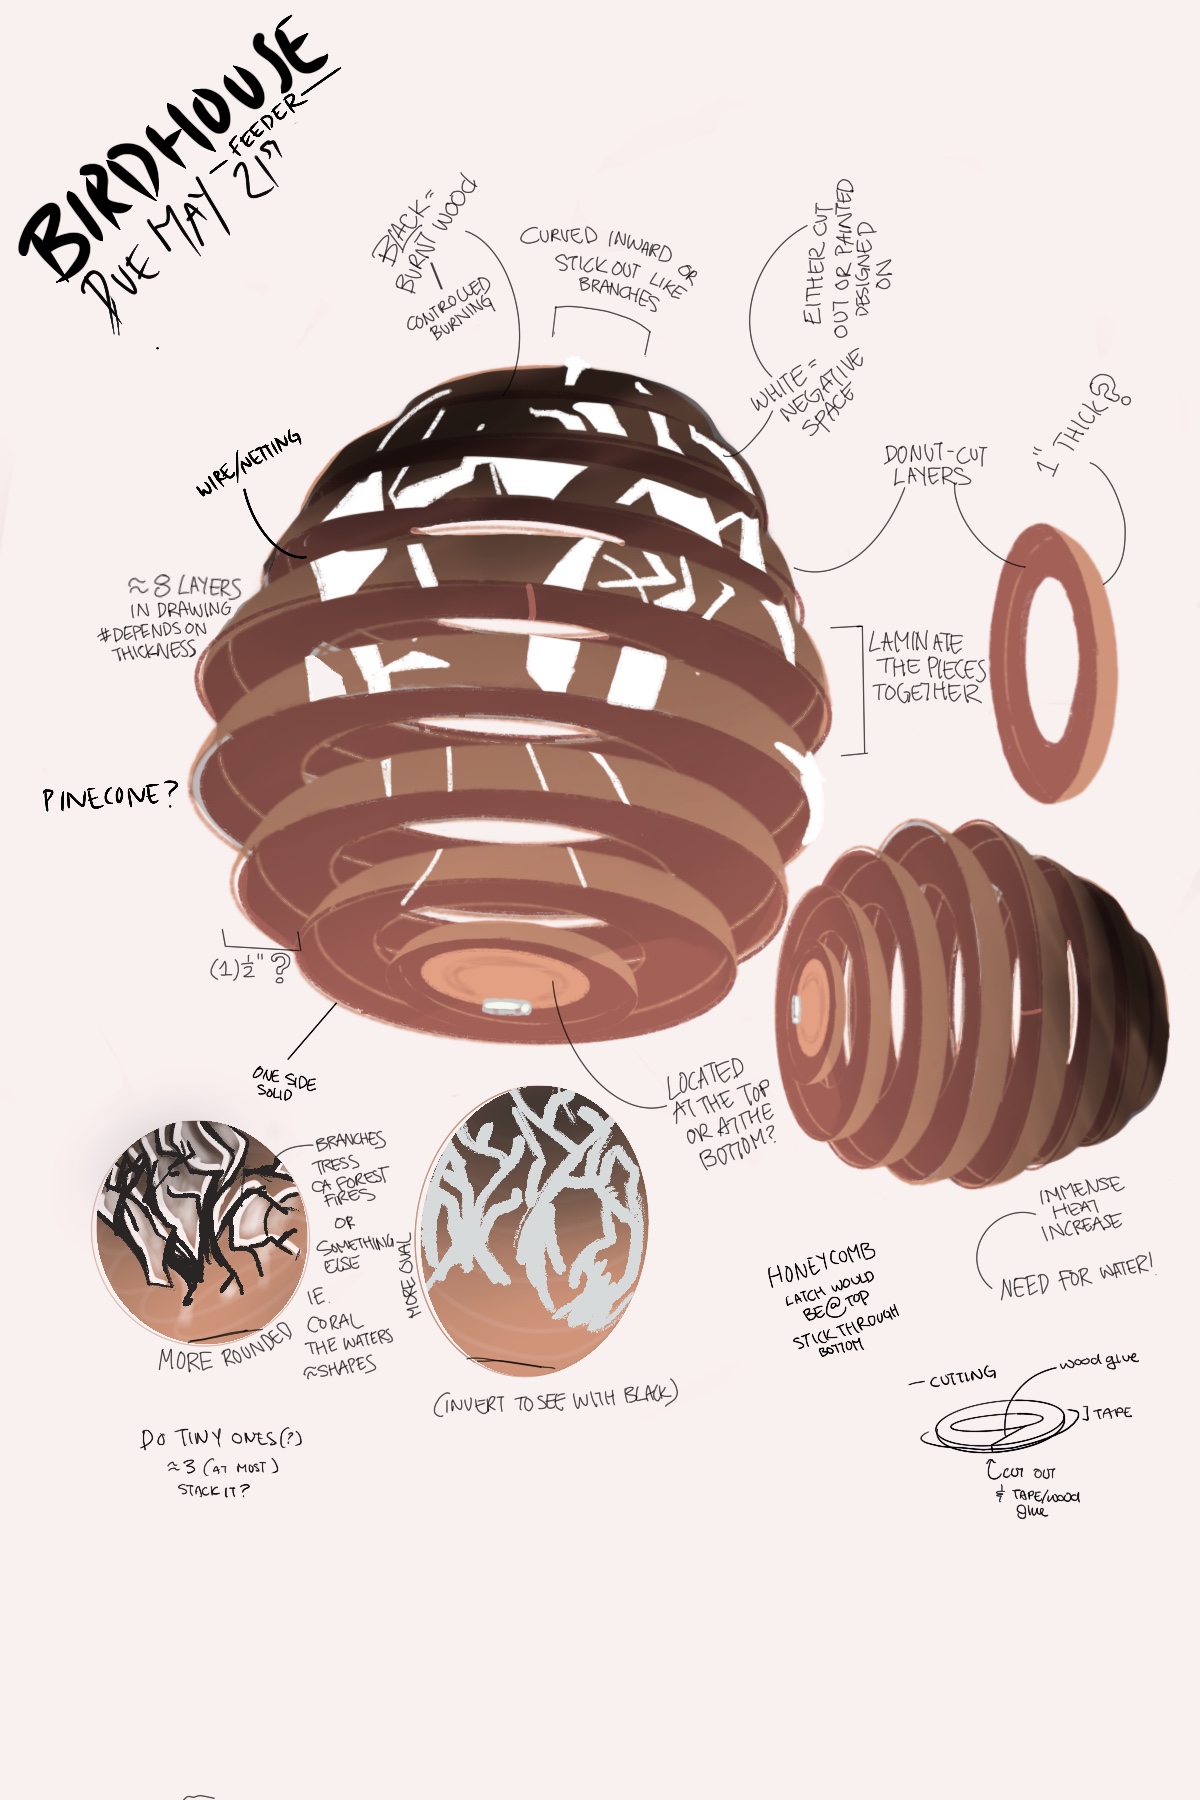 BIRDHOUSE
- FEEDER -
DUE MAY 21ST
BLACK =
BURNT WOOD
CONTROLLED
BURNING
CURVED INWARD OR
STICK OUT LIKE
BRANCHES
EITHER CUT
OUT OR PAINTED
DESIGNED
ON
WHITE =
NEGATIVE
SPACE
WIRE/NETTING
DONUT-CUT
LAYERS
1" THICK?
≈ 8 LAYERS
IN DRAWING
#DEPENDS ON
THICKNESS
LAMINATE
THE PIECES
TOGETHER
PINECONE?
(1)½" ?
ONE SIDE
SOLID
LOCATED
AT THE TOP
OR AT THE
BOTTOM?
BRANCHES
TRESS
CA FOREST
FIRES
OR
SOMETHING
ELSE
IE.
CORAL
THE WATERS
≈SHAPES
MORE ROUNDED
MORE OVAL
(INVERT TO SEE WITH BLACK)
IMMENSE
HEAT
INCREASE
NEED FOR WATER!
HONEYCOMB
LATCH WOULD
BE @ TOP
STICK THROUGH
BOTTOM
- CUTTING
wood glue
TAPE
CUT OUT
& TAPE/wood
glue
DO TINY ONES(?)
≈ 3 (AT MOST)
STACK IT?